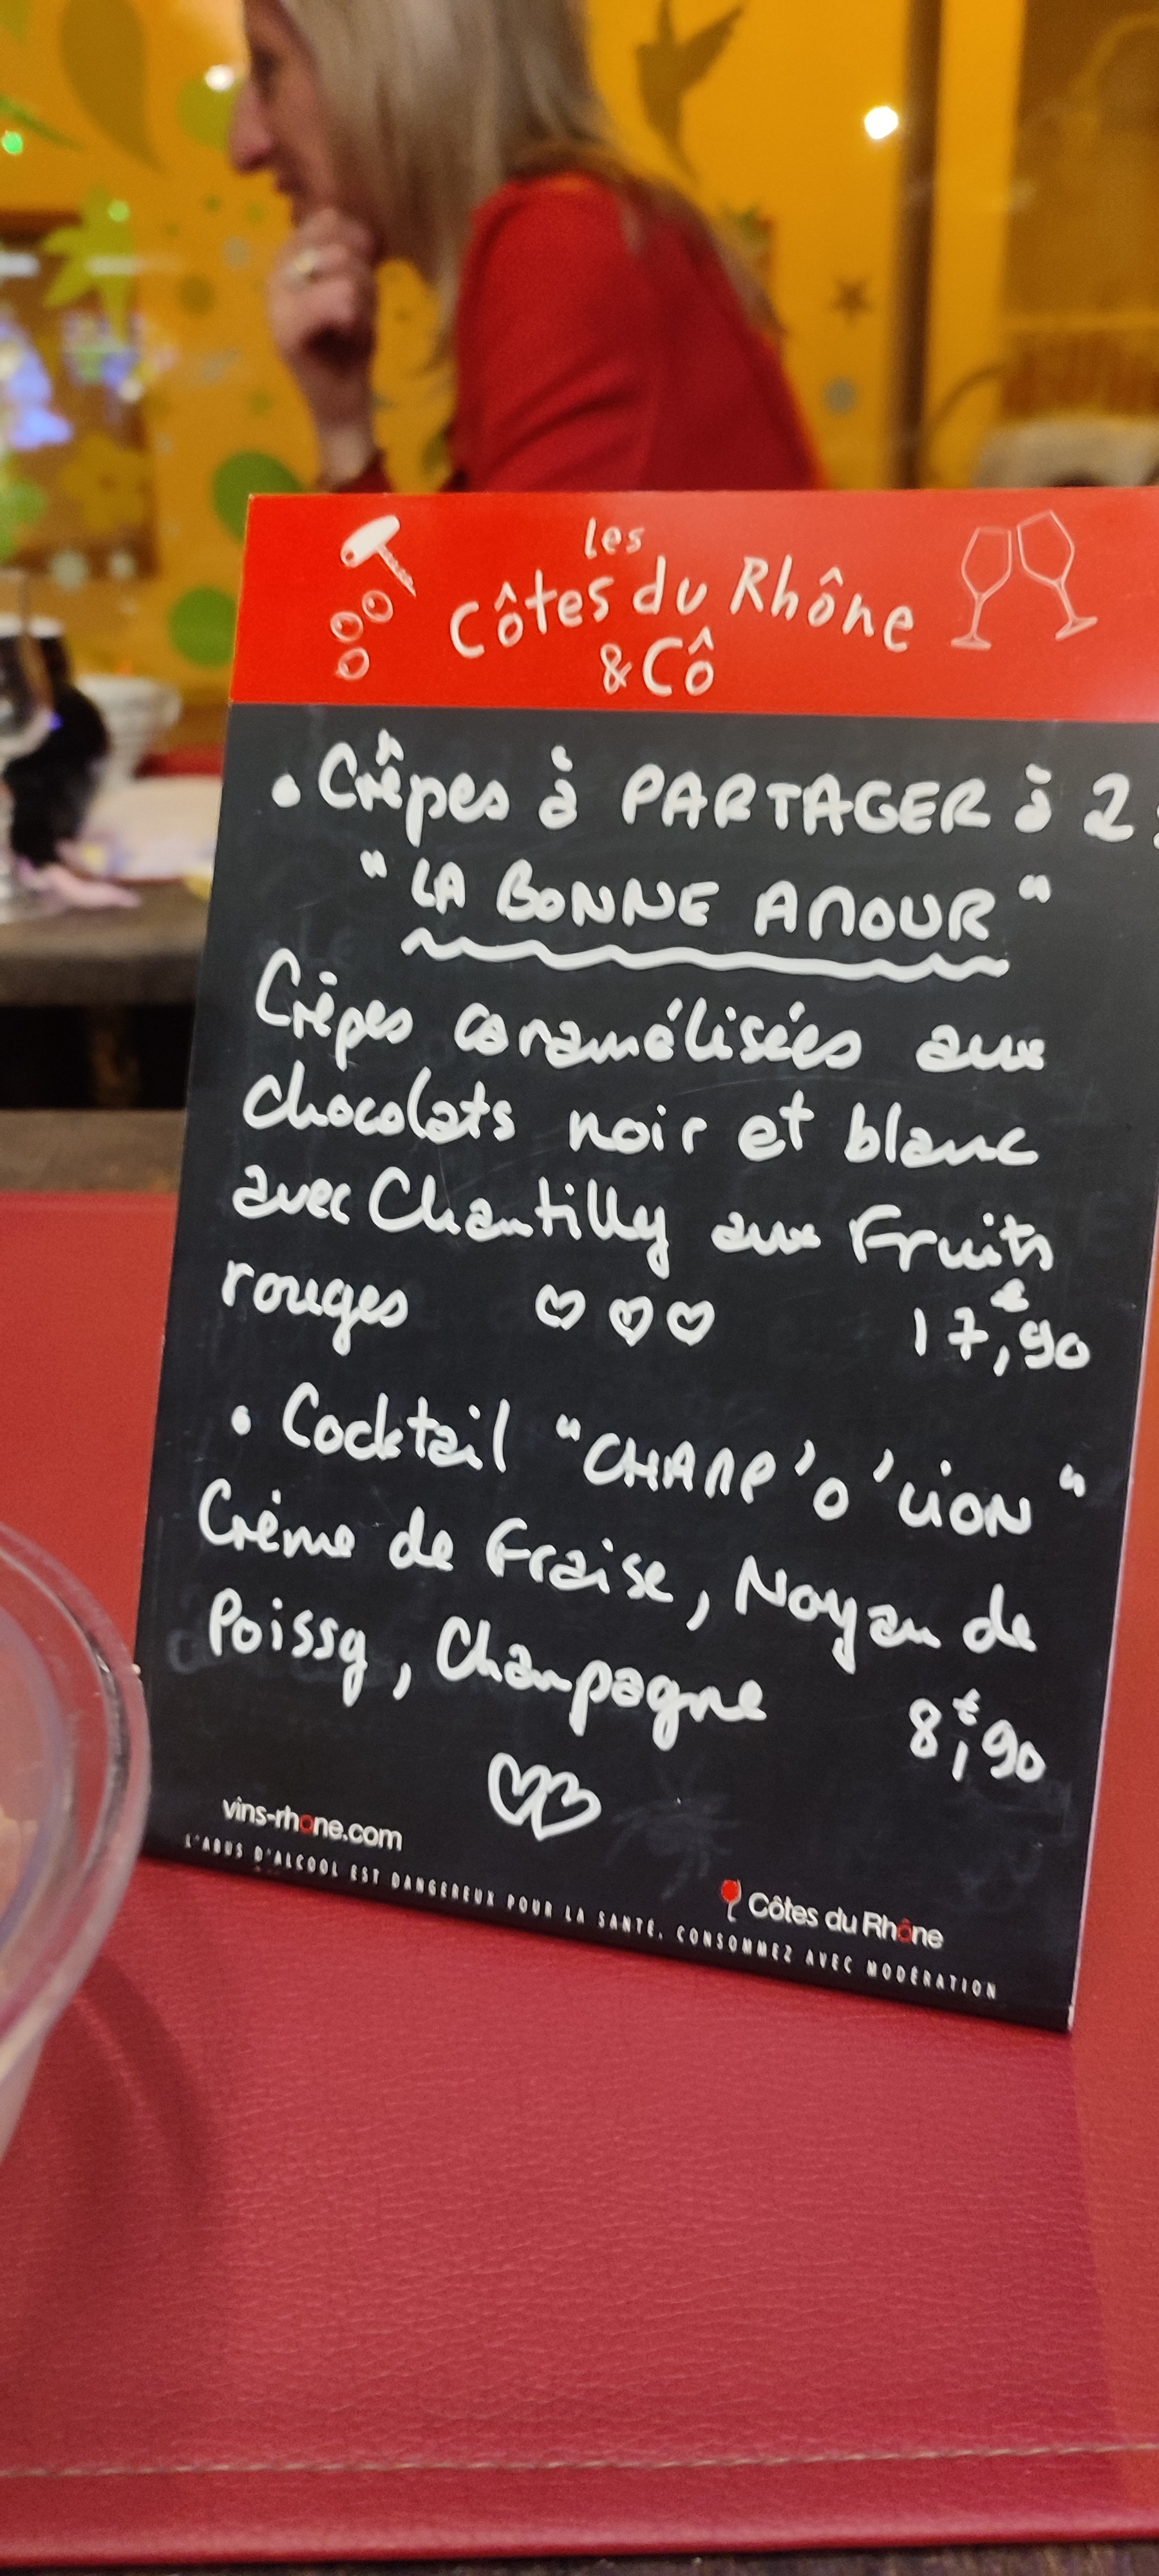 les
Côtes du Rhône
& Cô
• Crêpes à PARTAGER à 2 :
" LA BONNE AMOUR "
Crêpes caramélisées aux
chocolats noir et blanc
avec Chantilly aux Fruits
rouges ♡ ♡ ♡ 17,€90
• Cocktail "CHAMP'O'LION"
Crème de Fraise, Noyau de
Poissy, Champagne 8,€90
vins-rhone.com
Côtes du Rhône
L'ABUS D'ALCOOL EST DANGEREUX POUR LA SANTÉ, CONSOMMEZ AVEC MODÉRATION